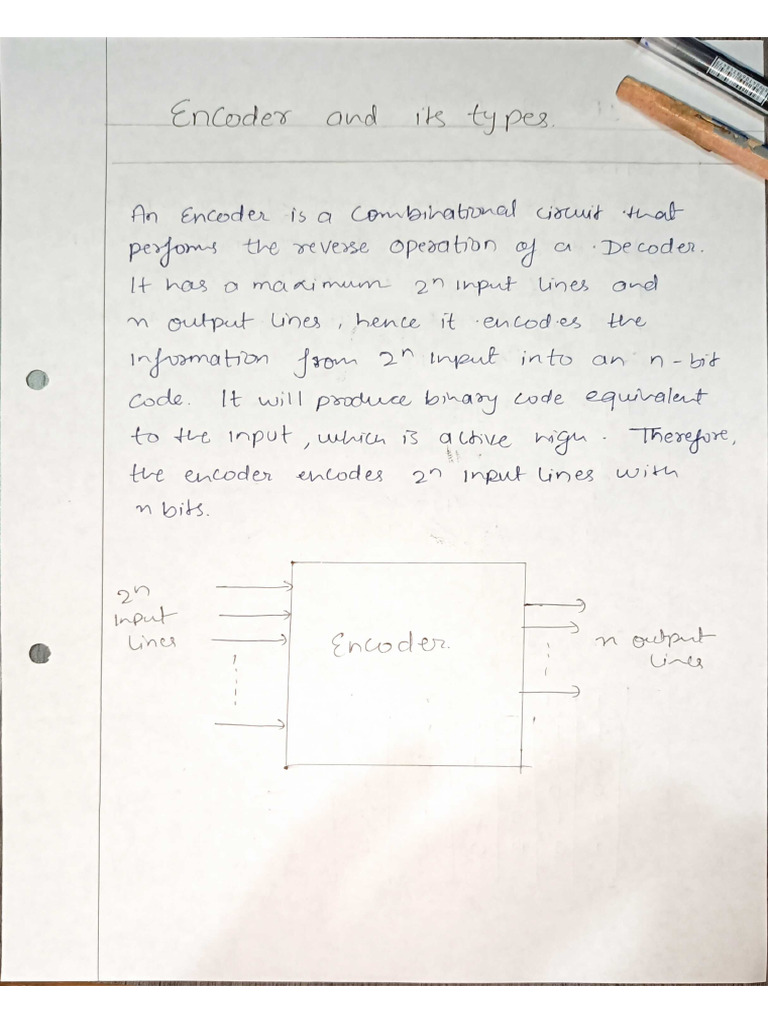 Encoder and its types.
An Encoder is a Combinational circuit that
performs the reverse operation of a Decoder.
It has a maximum 2ⁿ input lines and
n output lines, hence it encodes the
information from 2ⁿ input into an n-bit
code. It will produce binary code equivalent
to the input, which is active high. Therefore,
the encoder encodes 2ⁿ input lines with
n bits.
2ⁿ
input
lines
Encoder.
n output
lines